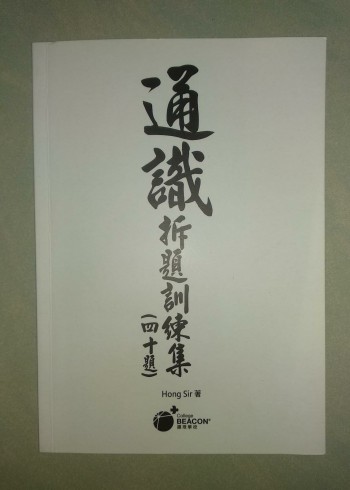 通識
拆題訓練集
(四十題)
Hong Sir 著
College
BEACON®
遵理學校